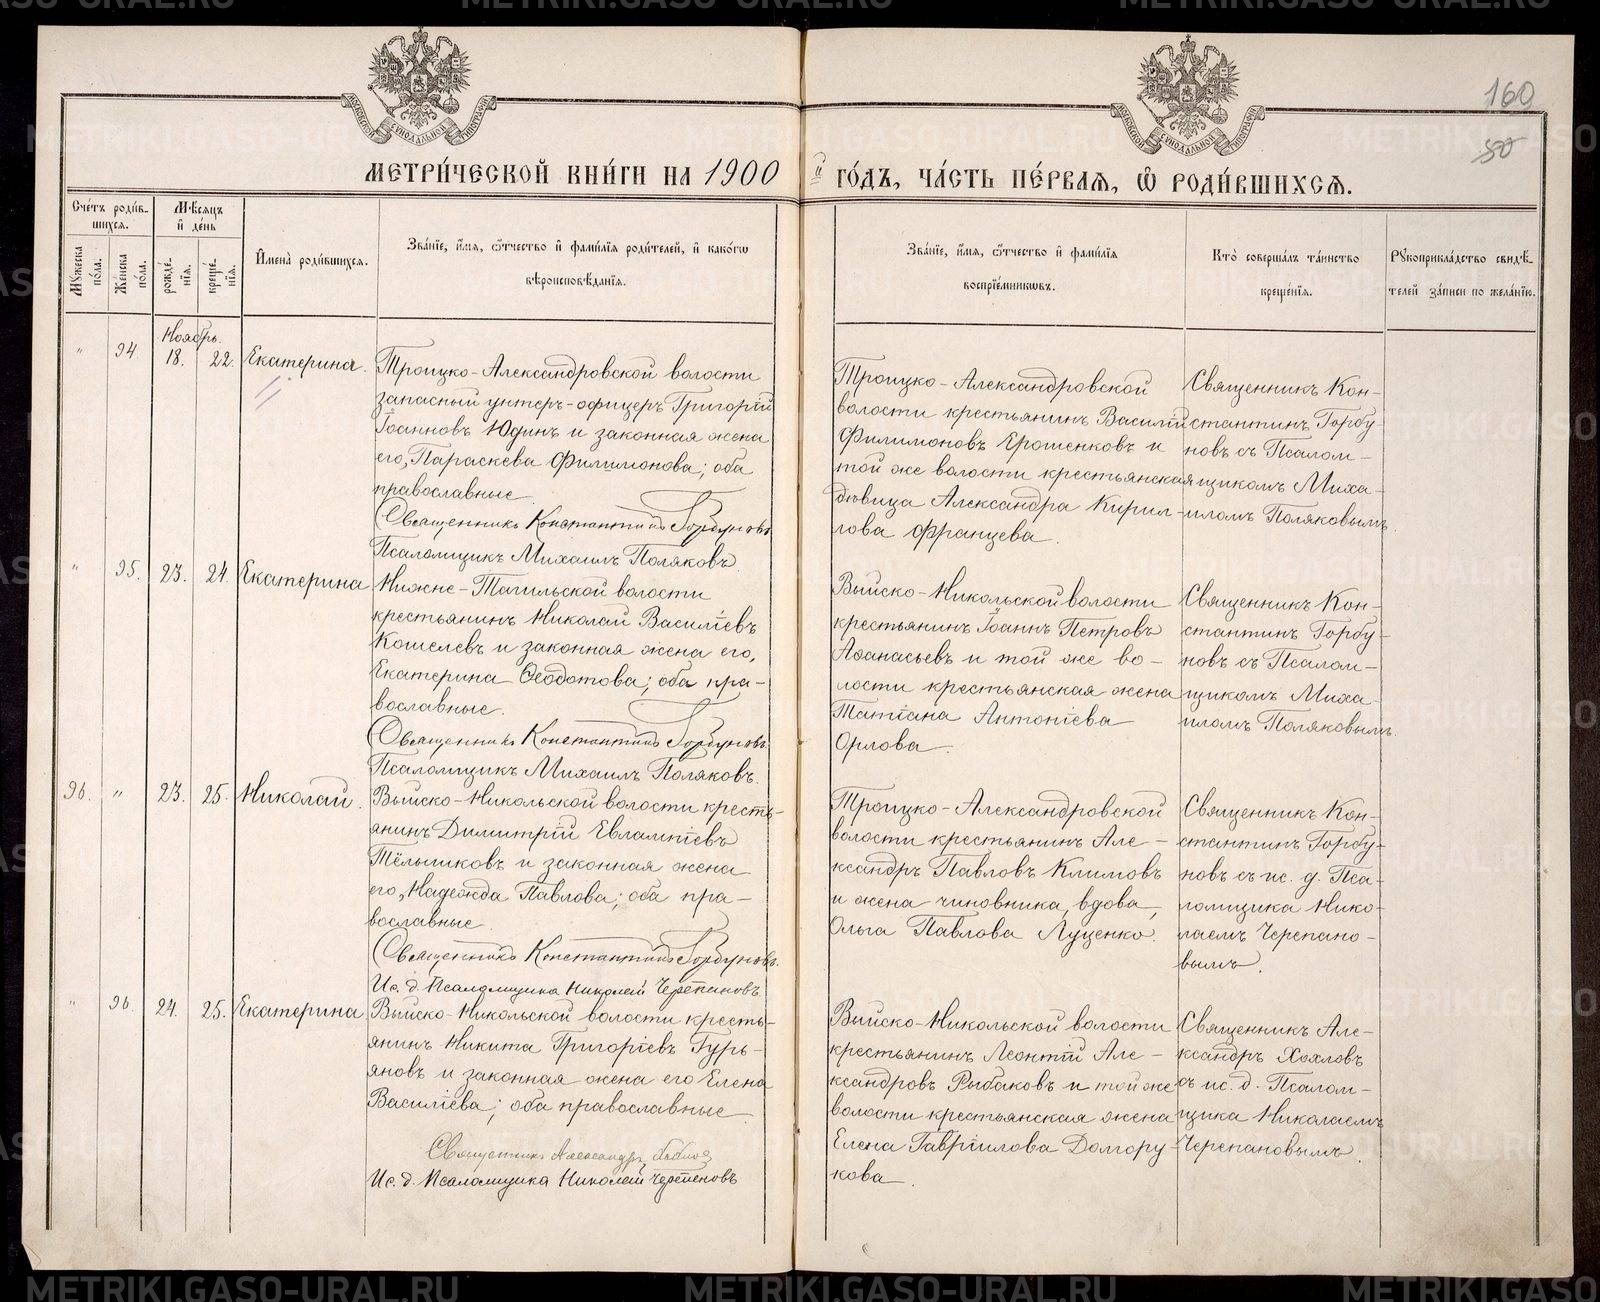 160
80
МОСКОВСКОЙ СѴНОДАЛЬНОЙ ТИПОГРАФІИ
МОСКОВСКОЙ СѴНОДАЛЬНОЙ ТИПОГРАФІИ
МЕТРИ́ЧЕСКОЙ КНИ́ГИ НА 1900 й ГО́ДЪ, ЧА́СТЬ ПЕ́РВАѦ, Ѡ҆ РОДИ́ВШИХСѦ.
Сче́тъ роди́в-
шихся.
Мѣ́сяцъ
и҆ де́нь
Му́жеска
по́ла.
Же́нска
по́ла.
рожде́-
нїя.
креще́-
нїя.
И҆мена̀ роди́вшихся.
Зва́нїе, и҆́мя, ѻ҆́тчество и҆ фами́лїя роди́телей, и҆ како́гѡ
вѣроисповѣ́данїя.
Зва́нїе, и҆́мя, ѻ҆́тчество и҆ фами́лїя
воспрїе́мникѡвъ.
Кто̀ соверша́лъ та́инство
креще́нїя.
Рꙋкоприкла́дство свидѣ́-
телей за́писи по жела́нїю.
Ноябрь.
" 94 18. 22. Екатерина.
Троицко-Александровской волости
запасный унтеръ-офицеръ Григорій
Іоанновъ Юдинъ и законная жена
его, Параскева Филимонова; оба
православные.
Священникъ Константинъ Горбуновъ
Псаломщикъ Михаилъ Поляковъ.
Троицко-Александровской
волости крестьянинъ Василій
Филимоновъ Ерошенковъ и
той же волости крестьянская
дѣвица Александра Кирил-
лова Францева.
Священникъ Кон-
стантинъ Горбу-
новъ съ Псалом-
щикомъ Миха-
иломъ Поляковымъ.
" 95. 23. 24. Екатерина
Нижне-Тагильской волости
крестьянинъ Николай Василіевъ
Кошелевъ и законная жена его,
Екатерина Ѳеодотова; оба пра-
вославные.
Священникъ Константинъ Горбуновъ
Псаломщикъ Михаилъ Поляковъ.
Выйско-Никольской волости
крестьянинъ Іоаннъ Петровъ
Аѳанасьевъ и той же во-
лости крестьянская жена
Татіана Антоніева
Орлова.
Священникъ Кон-
стантинъ Горбу-
новъ съ Псалом-
щикомъ Миха-
иломъ Поляковымъ.
96. " 23. 25. Николай.
Выйско-Никольской волости кресть-
янинъ Димитрій Евлампіевъ
Тёлышковъ и законная жена
его, Надежда Павлова; оба пра-
вославные.
Священникъ Константинъ Горбуновъ.
Ис. д. Псаломщика Николай Черепановъ.
Троицко-Александровской
волости крестьянинъ Але-
ксандръ Павловъ Климовъ
и жена чиновника, вдова,
Ольга Павлова Луценко.
Священникъ Кон-
стантинъ Горбу-
новъ съ ис. д. Пса-
ломщика Нико-
лаемъ Черепано-
вымъ.
" 96. 24. 25. Екатерина
Выйско-Никольской волости кресть-
янинъ Никита Григоріевъ Гурь-
яновъ и законная жена его Елена
Василіева; оба православные.
Священникъ Александръ Хохловъ
Ис. д. Псаломщика Николай Черепановъ
Выйско-Никольской волости
крестьянинъ Леонтій Але-
ксандровъ Рыбаковъ и той же
волости крестьянская жена
Елена Гавріилова Долгору-
кова.
Священникъ Але-
ксандръ Хохловъ
съ ис. д. Псалом-
щика Николаемъ
Черепановымъ.
METRIKI.GASO-URAL.RU
METRIKI.GASO-URAL.RU
METRIKI.GASO-URAL.RU